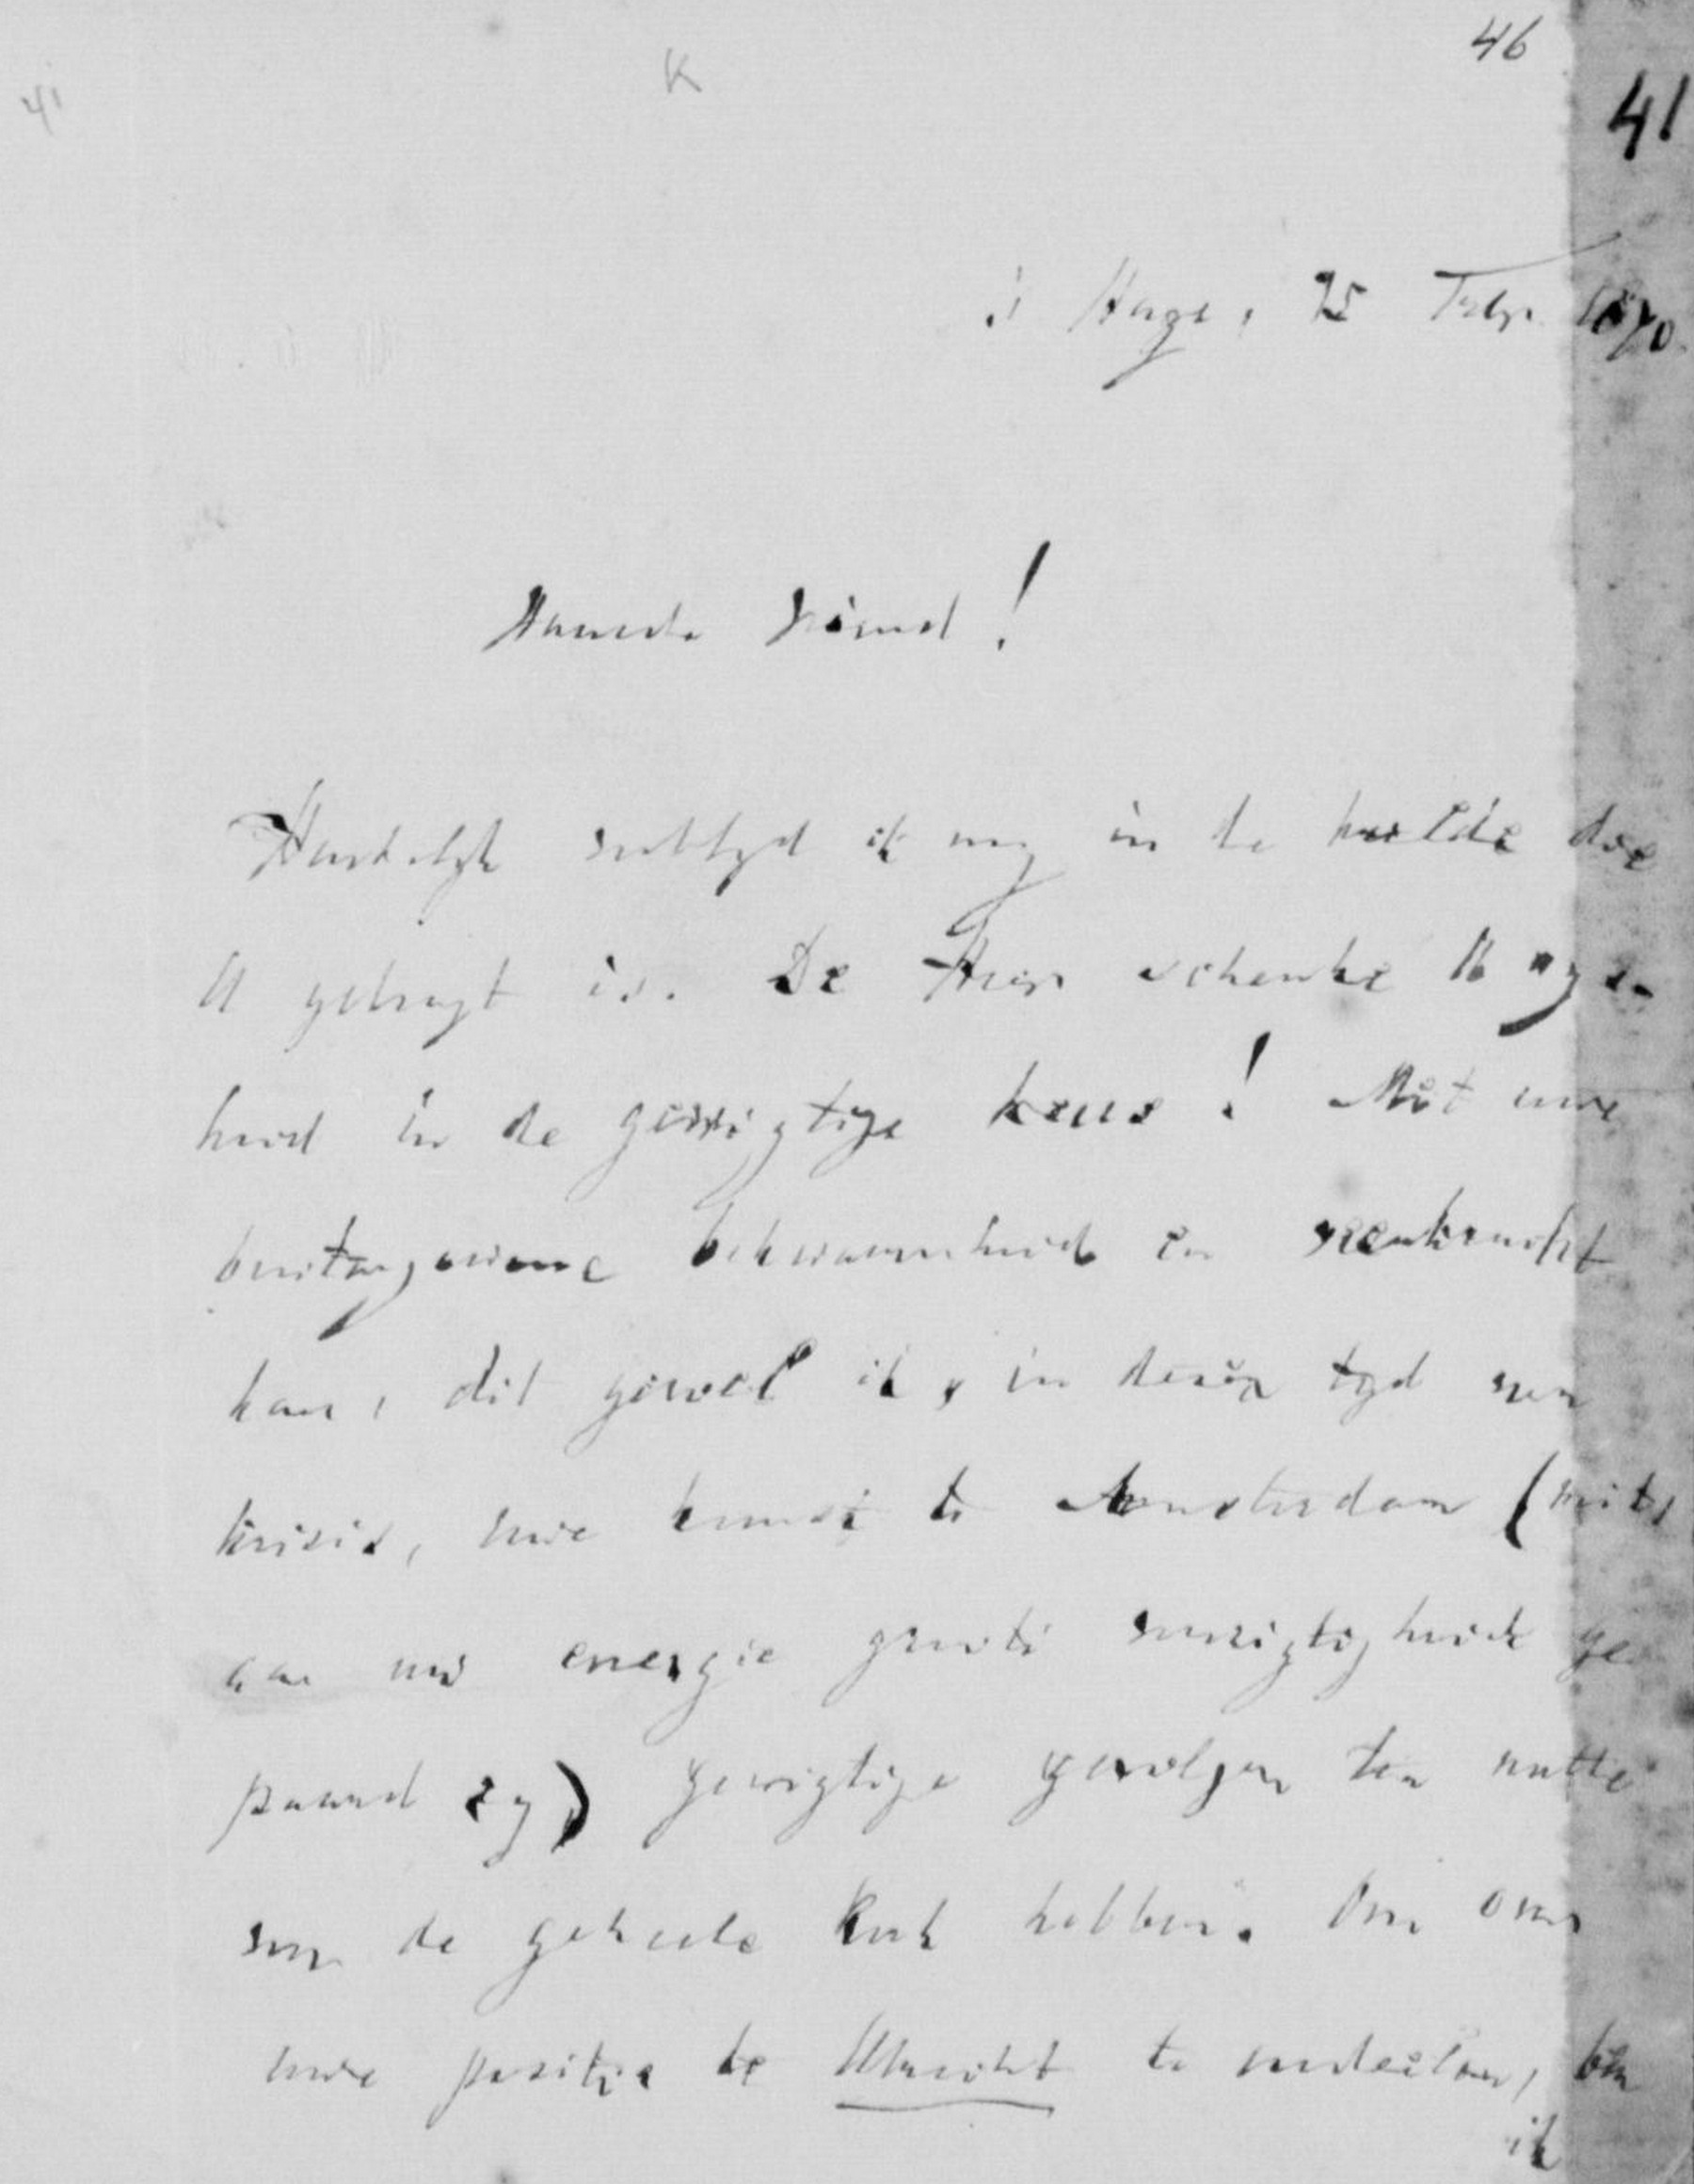 46
K
41
41
's Hage, 25 Febr. 1870.
Waarde Vriend!
Hartelijk verblijd ik mij in de hulde die
U gebragt is. De Heer schenke U wijs-
heid in de gewigtige keus! Met uwe
buitengewone bekwaamheid en veerkracht
kan, dit gevoel ik, in dezen tijd van
krisis, uwe komst te Amsterdam (mits
aan uw energie groote voorzigtigheid ge
paard zij) gewigtige gevolgen ten nutte
van de geheele Kerk hebben. Om over
uwe positie te Utrecht te oordeelen, ben
ik